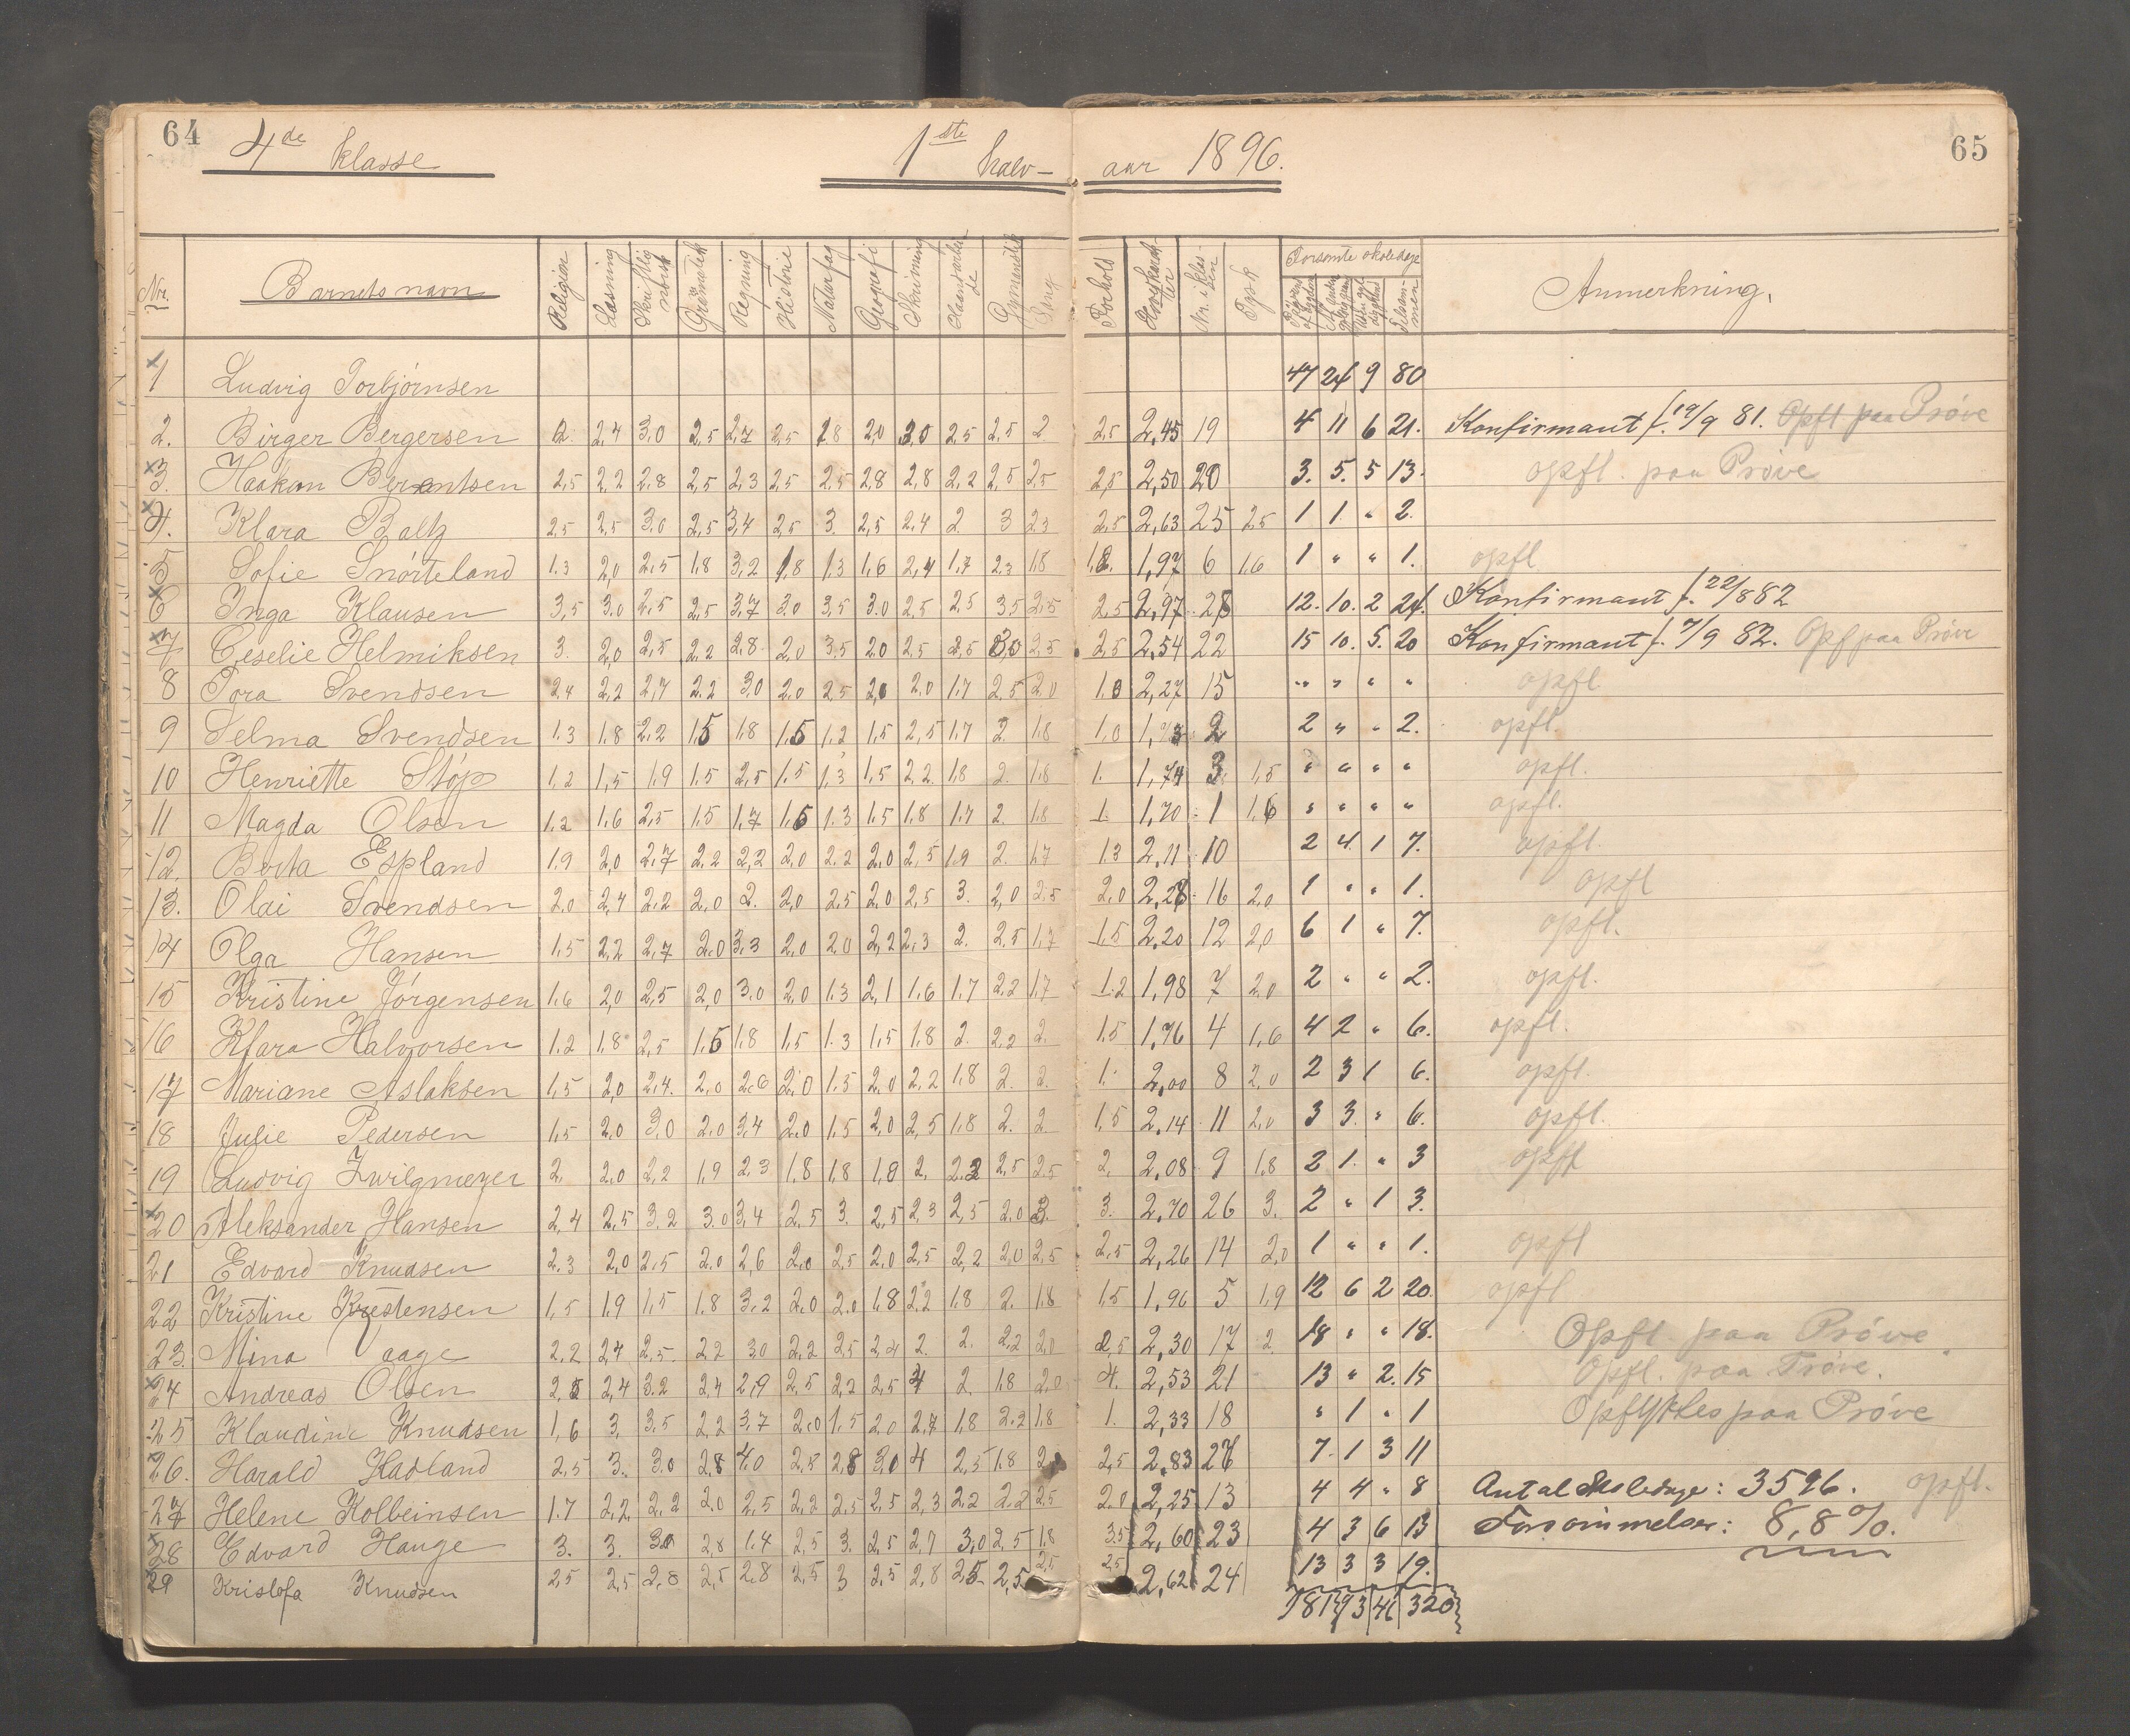 64
65
4de klasse 1ste halv- aar 1896.
Nr. Barnets navn Religion Læsning Skriftlig norsk Regning Historie Naturfag Geografi Skrivning Haandarbeide Gymnastik Sang Forhold Nr. i klassen Forsømte skoledage Tilsammen Anmerkning.
1 Ludvig Torbjørnsen 47 24 9 80
2. Birger Bergersen 2. 2,4 3,0 2,5 2,7 2,5 1,8 2,0 3,0 2,5 2,5 2 2,5 2,45 19 4 11 6 21. Konfirmant f. 19/9 81. Opfl paa Prøve
3. Haakon Berentsen 2,5 2,2 2,8 2,5 2,3 2,5 2,5 2,8 2,8 2,2 2,5 2,5 2,5 2,50 20 3. 5. 5 13. opfl. paa Prøve
4. Klara Baltz 2,5 2,5 3,0 2,5 3,4 2,5 3. 2,5 2,4 2. 3 2,3 2,5 2,63 25 2,5 1 1. " 2.
5 Sofie Snørteland 1.3 2,0 2,5 1,8 3,2 1,8 1,3 1,6 2,4 1,7 2,3 1,8 1,8. 1,97 6 1,6 1 " " 1. opfl
6 Inga Klausen 3,5 3,0 2,5 2,5 3,7 3,0 3,5 3.0 2,5 2,5 3,5 2,5 2,5 2,97 28 12. 10. 2 24. Konfirmant f. 22/8 82
7 Ceselie Helmiksen 3. 2,0 2,5 2,2 2,8 2,0 3,5 2,0 2,5 2,5 3,0 2,5 2,5 2,54 22 15 10. 5. 20 Konfirmant f. 7/9 82. Opf paa Prøve
8 Tora Svendsen 2,4 2,2 2,4 2,2 3,0 2,0 2,5 2,0 2,0 1,7 2,5 2,0 1,0 2,27 15 " " " " opfl
9 Selma Svendsen 1.3 1,8 2,2 1,5 1,8 1,5 1,2 1,5 2,5 1,7 2. 1,8 1,0 2 2 " " 2. opfl.
10 Henriette Støp 1,2 1,5 1,9 1,5 2,5 1,5 1,3 1,5 2,2 1,8 2. 1,8 1. 1,74 3. 1,5 " " " " opfl.
11 Magda Olsen 1.2 1,6 2,5 1,5 1,7 1,5 1.3 1,5 1,8 1,7 2. 1,8 1. 1,70 1 1,6 " " " " opfl.
12. Berta Espland 1.9 2,0 2,7 2,2 2,2 2,0 2,2 2,0 2,5 1,9 2. 1,7 1.3 2,11 10 2 4 1 7. opfl.
13. Olai Svendsen 2.0 2,4 2,2 2,0 2. 2,0 2,5 2,0 2,5 3. 2,0 2,5 2,0 2,28 16 2,0 1 " " 1. opfl
14 Olga Hansen 1.5 2,2 2,7 2.0 3,3 2,0 2,0 2,2 2,3 2. 2,5 1,7 1,5 2,20 12 2,0 6 1 " 7. opfl.
15 Kristine Jørgensen 1.6 2,0 2,5 2,0 3.0 2,0 1.3 2,1 1,6 1.7 2,2 1,7 1.2 1,98 7 2,0 2 " " 2. opfl.
16 Klara Halvorsen 1.2 1,8 2,5 1,5 1,8 1,5 1.3 1,5 1,8 2. 2,2 2. 1,5 1,76 4 1,6 4 2 " 6. opfl.
17 Mariane Aslaksen 1,5 2,0 2,4. 2,0 2,6 2,0 1.5 2,0 2,2 1,8 2. 2. 1. 2,00 8 2,0 2 3 1 6. opfl.
18 Julie Pedersen 1,5 2,0 3,0 2,0 3,4 2,0 1.5 2,0 2,5 1,8 2. 2. 1,5 2,14 11 2,0 3 3. " 6. opfl.
19 Ludvig Zwilgmeyer 2. 2,0 2,2 1,9 2,3 1,8 1,8 1,8 2. 2,2 2,5 2,5 2. 2,08 9 1,8 2 1. " 3 opfl
20 Aleksander Hansen 2,4 2,5 3,2 3.0 3,4 2,5 3. 2,5 2,3 2,5 2,0 3. 3. 2,70 26 3. 2 " 1 3.
21 Edvard Knudsen 2.3 2,0 2,5 2.0 2,6 2,0 2,5 2,0 2,5 2,2 2,0 2,5 2,5 2,26 14 2,0 1 " " 1. opfl
22 Kristine Krestensen 1,5 1,9 1,5 1,8 3,2 2,0 2,0 1,8 2,2 1,8 2. 1,8 1,5 1,96 5 1,9 12 6 2 20. opfl
23. Mina Vaage 2,2 2,4 2,5. 2,2 3,0 2,2 2,5 2,4 2. 2. 2,2 2,0 2,5 2,30 17 2. 18 " " 18. Opfl. paa Prøve.
24 Andreas Olsen 2,5 2,4 3,2 2,4 2,9 2,5 2,2 2,5 4 2. 1,8 2,0 4. 2,53 21 13 " 2. 15 Opfl. paa Prøve.
25 Klaudine Knudsen 1,6 3. 3,5 2,2 3,7 2,0 1,5 2,0 2,7 1,8 2,2 1,8 1. 2,33 18 " 1 " 1 Opflyttes paa Prøve
26. Harald Hadland 2,5 3. 3,0 2,8 4,0 2,5 2,8 3,0 4 2,5 1,8 2,5 2,83 27 7. 1 3 11
27 Helene Kolbeinsen 1.7 2,2. 2,2 2,0 2,5 2,2 2,5 2,5 2,3 2,2 2,2 2,5 2,0 2,25 13 4 4 " 8 Antal skoledage: 3596. opfl.
28 Edvard Hauge 3. 3. 3,0 2,8 1.4 2,5 3. 2,5 2,7 3,0 2,5 1,8 3,5 2,60 23 4 3 6 13 Forsømmelser: 8,8 %.
29 Kristofa Knudsen 2,5 2,5 2,8 2,5 2,8 2,5 3 2,5 2,8 2,5 2,5 2,5 2,5 2,62 24 13 3 3 19.
181 93 46 320